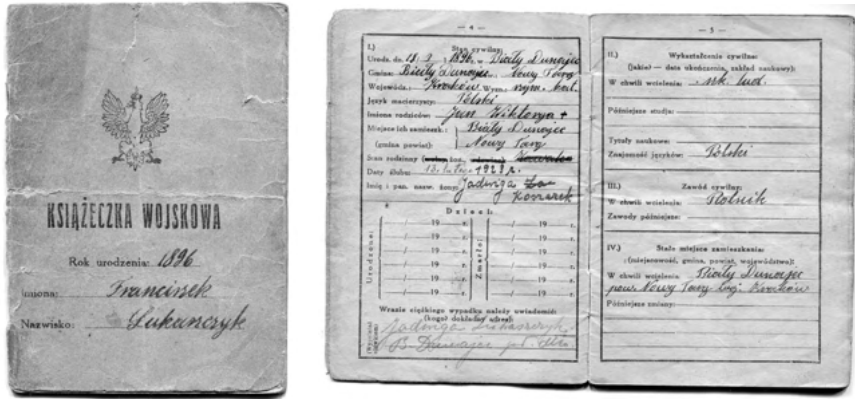 KSIĄŻECZKA WOJSKOWA
Rok urodzenia: 1896
Imiona: Franciszek
Nazwisko: Łukaszczyk
— 4 —
I.) Stan cywilny:
Urodz. dn. 18. 3 1896 r. w Biały Dunajec
Gmina: Biały Dunajec Nowy Targ
Wojewódz.: Kraków Wyzn.: rzym. kat.
Język macierzysty: Polski
Imiona rodziców: Jan Wiktorja +
Miejsce ich zamieszk.: Biały Dunajec
(gmina powiat): Nowy Targ
Stan rodzinny
Daty ślubu: 13. lutego 1929 r.
Imię i pan. nazw. żony: Jadwiga
Dzieci:
Urodzone:
Zmarłe:
Wrazie ciężkiego wypadku należy uwiadomić:
(kogo? dokładny adres):
Jadwiga
B. Dunajec
— 5 —
II.) Wykształcenie cywilne:
(jakie) — data ukończenia, zakład naukowy):
W chwili wcielenia: lud.
Późniejsze studja:
Tytuły naukowe:
Znajomość języków: Polski
III.) Zawód cywilny:
W chwili wcielenia: Rolnik
Zawody późniejsze:
IV.) Stałe miejsce zamieszkania:
(miejscowość, gmina, powiat, województwo):
W chwili wcielenia: Biały Dunajec
pow. Nowy Targ woj. Kraków
Późniejsze zmiany: